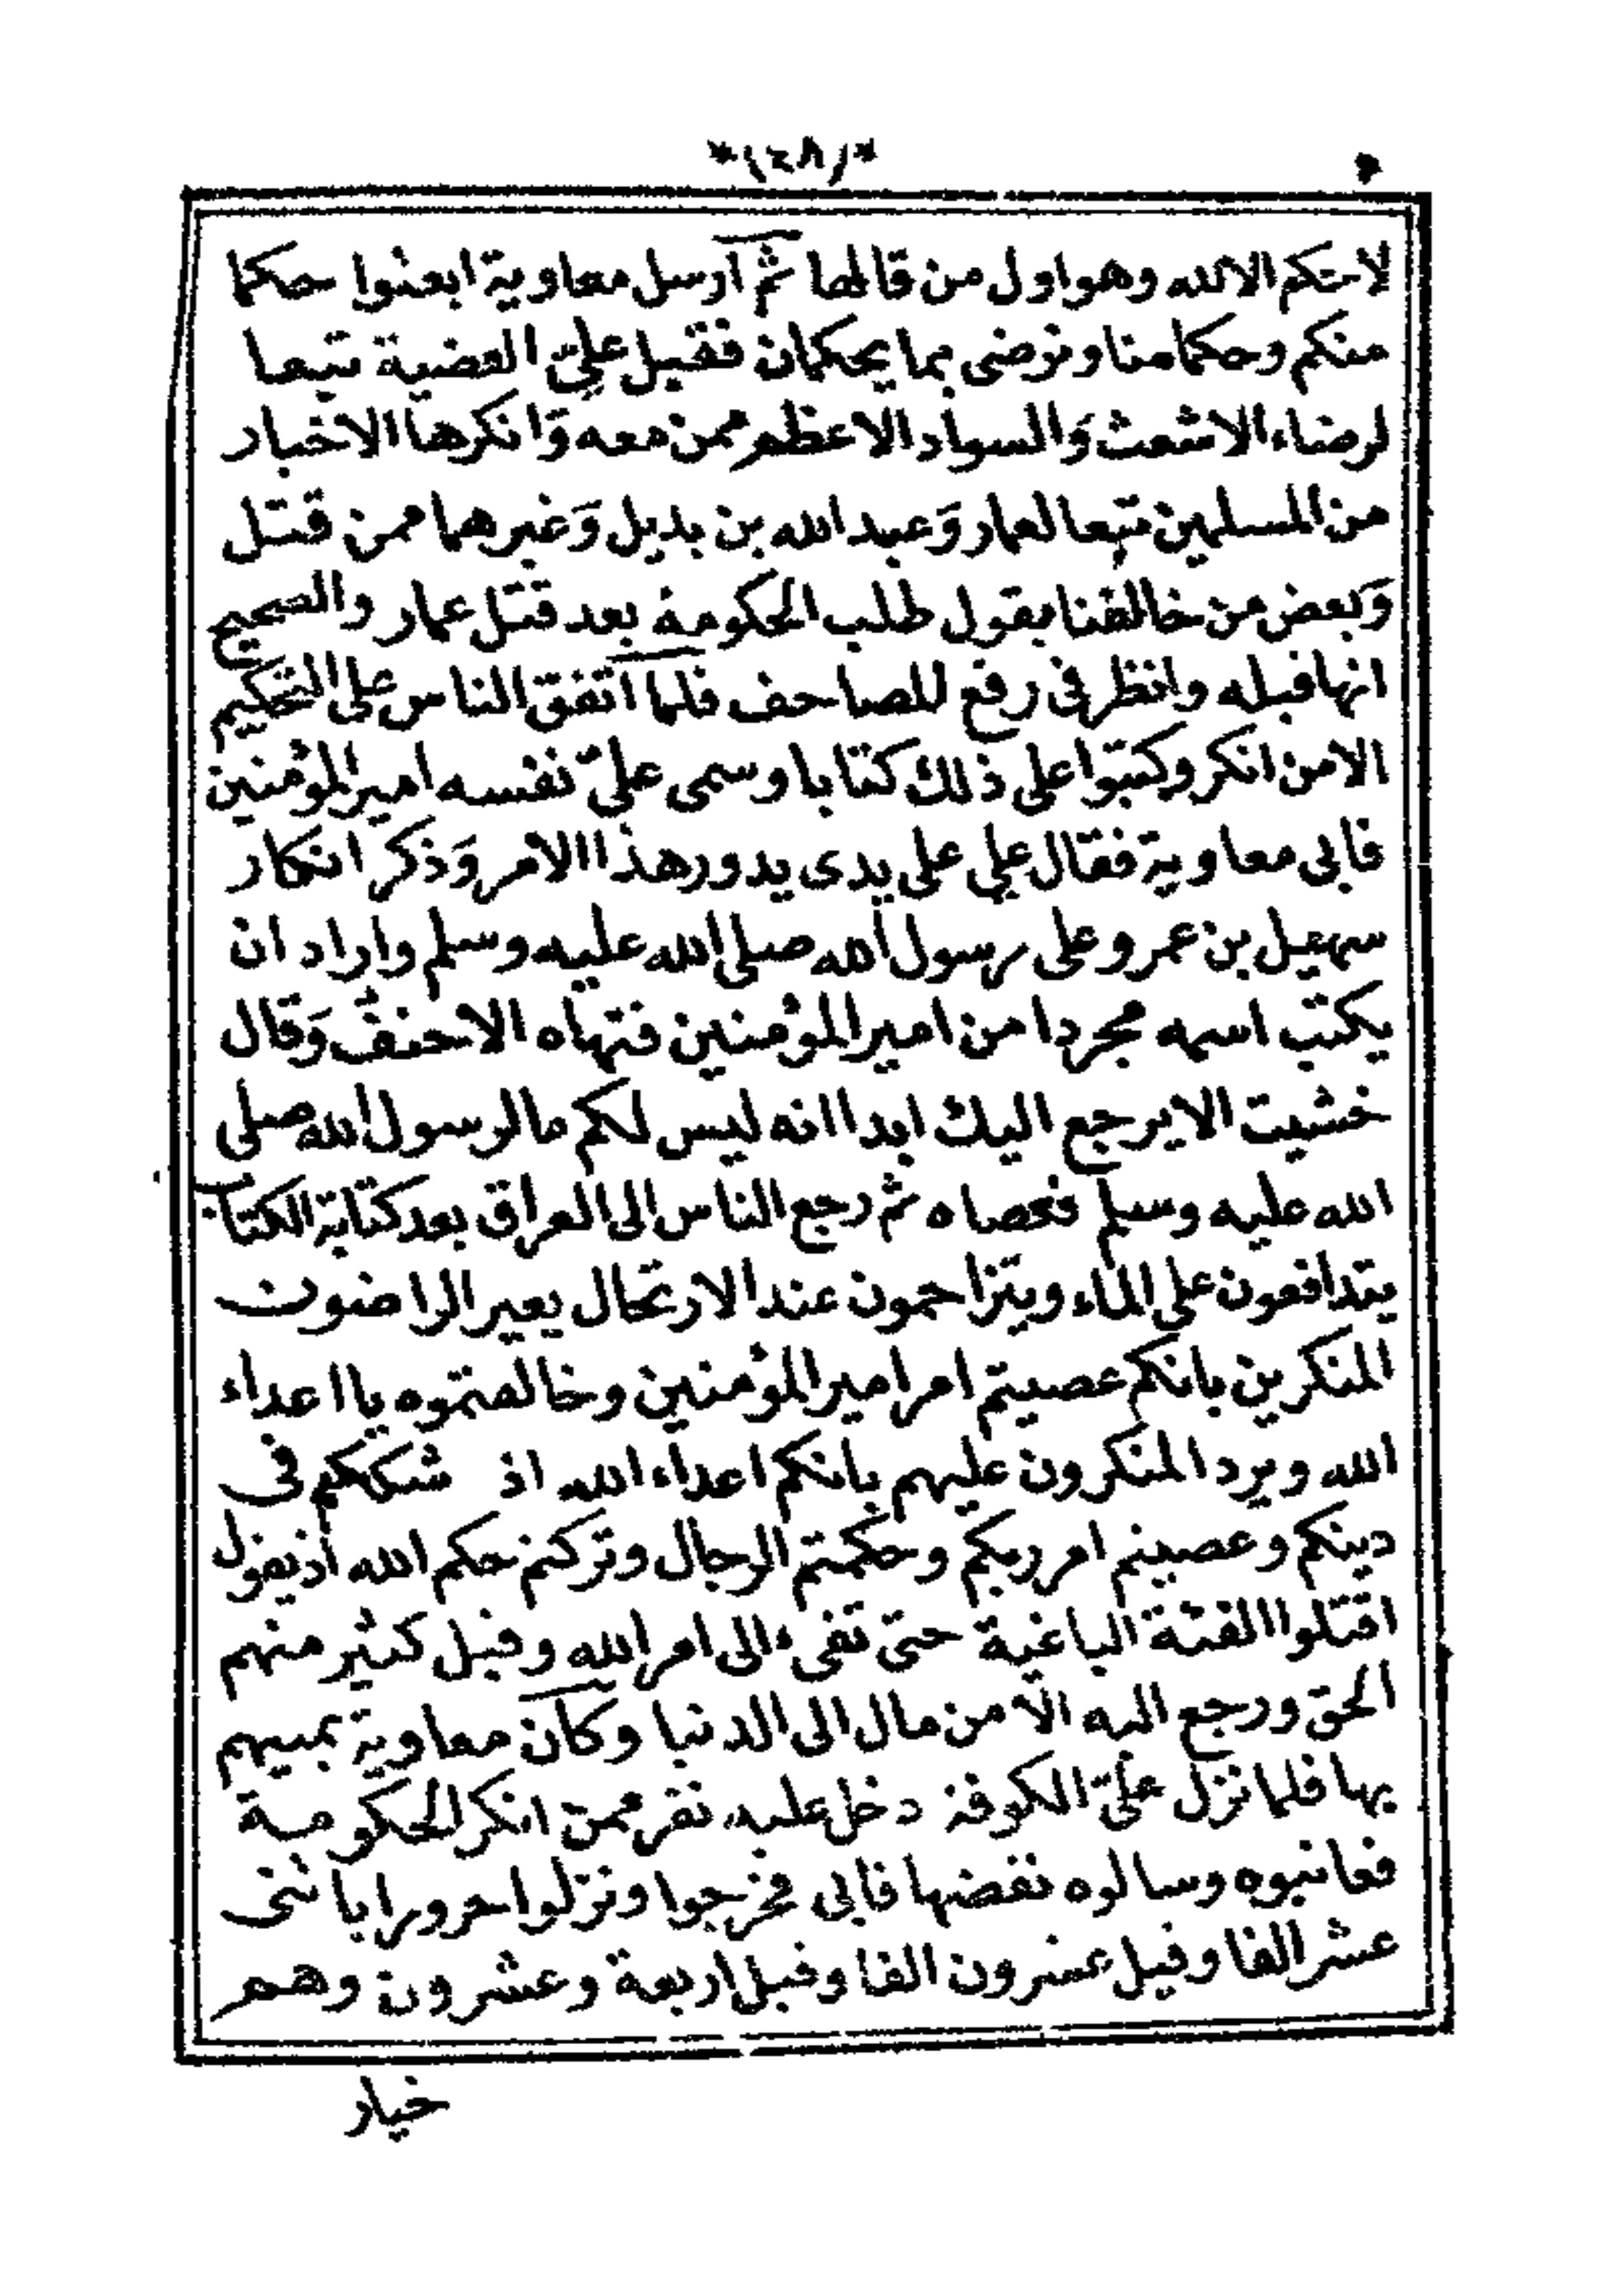 *(٤٨)*
لاحكم الالله وهو اول من قالها ثم ارسل معاوية ابعثوا حكما
منكم وحكما منا ونرضى بما يحكمان فقبل عليّ القضية تبعا
لرضاء الاشعث وَالسواد الاعظم ممن معه وَانكرها الاخيار
من المسلمين تبعا لعمار وَعبد الله بن بديل وَغيرهما ممن قتل
وَبعض من خالفنا يقول طلب الحكومة بعد قتل عمار والصحيح
انها قبله وانظر فى رفع المصاحف فلما اتفق الناس على التحكيم
الا من انكر وكتبوا على ذلك كتابا وسمى عليّ نفسه امير المؤمنين
فابى معاوية فقال علي على يدى يدور هذا الامر وَذكر انكار
سهيل بن عمرو على رسول الله صلى الله عليه وسلم واراد ان
يكتب اسمه مجردا من امير المؤمنين فنهاه الاحنف وَقال
خشيت الا يرجع اليك ابدا انه ليس لكم ما لرسول الله صلى
الله عليه وسلم فعصاه ثم رجع الناس الى العراق بعد كتابة الكتاب
يتدافعون على الماء ويتزاحمون عند الارتحال يعير الراضون
المنكرين بانكم عصيتم امر امير المؤمنين وخالفتموه يا اعداء
الله ويرد المنكرون عليهم بانكم اعداء الله اذ شككم فى
دينكم وعصيتم امر ربكم وحكمتم الرجال وتركتم حكم الله اذ يقول
اقتلوا الفئة الباغية حتى تفىء الى امر الله وقبل كثير منهم
الحق ورجع اليه الا من مال الى الدنيا وكان معاوية يمنيهم
بها فلما نزل عليّ الكوفة دخل عليه نفر ممن انكر الحكومة
فعاتبوه وسالوه نقضها فابى فخرجوا ونزلوا حرورا باثنى
عشر الفا وقيل عشرون الفا وقيل اربعة وعشرون وهم
خيار